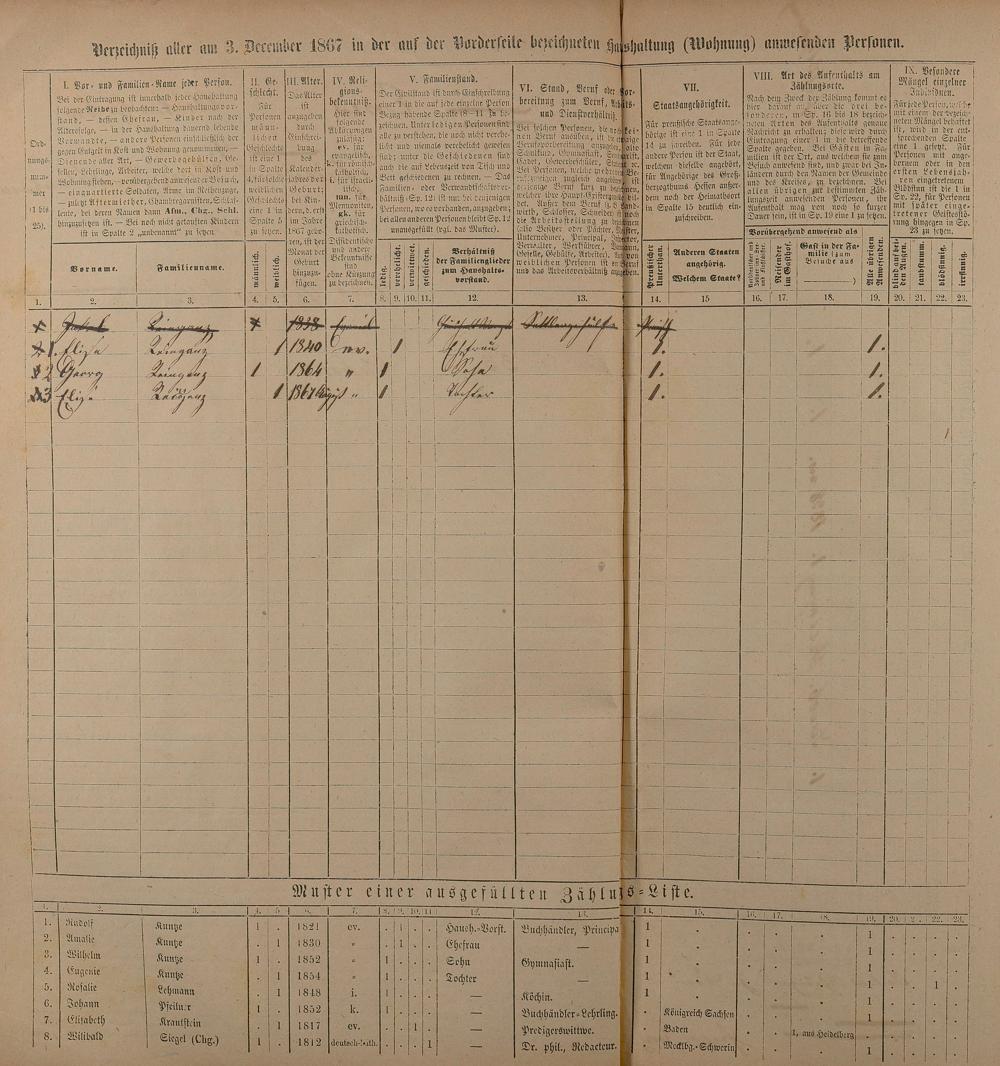 Verzeichniß aller am 3. December 1867 in der auf der Vorderseite bezeichneten Haushaltung (Wohnung) anwesenden Personen.
Ord-
nungs-
num-
mer
(1 bis
25).
I. Vor- und Familien-Name jeder Person.
Bei der Eintragung ist innerhalb jeder Haushaltung
folgende Reihe zu beobachten: — Haushaltungsvor-
stand, — dessen Ehefrau, — Kinder nach der
Altersfolge, — in der Haushaltung dauernd lebende
Verwandte, — andere Personen einschließlich der
gegen Entgelt in Kost und Wohnung genommenen, —
Dienende aller Art, — Gewerbsgehülfen, Ge-
sellen, Lehrlinge, Arbeiter, welche dort in Kost und
Wohnung stehen, — vorübergehend anwesender Besuch,
— einquartierte Soldaten, Arme im Reihenzuge,
— zuletzt Aftermiether, Chambregarnisten, Schlaf-
leute, bei deren Namen dann Afm., Chg., Schl.
hinzuzusetzen ist. — Bei noch nicht getauften Kindern
ist in Spalte 2 „unbenannt" zu setzen.
Vorname.
Familienname.
II. Ge-
schlecht.
Für
Personen
männ-
lichen
Geschlechts
ist eine 1
in Spalte
4, für solche
weiblichen
Geschlechts
eine 1 in
Spalte 5
zu setzen.
männlich.
weiblich.
III. Alter.
Das Alter
ist
anzugeben
durch
Einschrei-
bung
des
Kalender-
jahres der
Geburt;
bei Kin-
dern, d. erst
im Jahre
1867 gebo-
ren, ist der
Monat der
Geburt
hinzuzu-
fügen.
IV. Reli-
gions-
bekenntniß.
Hier sind
folgende
Abkürzungen
zulässig:
ev. für
evangelisch,
k. für römisch-
kathol.,
i. für Israeli-
tisch,
mn. für
Mennoniten,
gk. für
griechisch-
katholisch.
Dissidentische
und andere
Bekenntnisse
sind
ohne Kürzung
zu bezeichnen.
V. Familienstand.
Der Civilstand ist durch Einschreibung
einer 1 in die auf jede einzelne Person
Bezug habende Spalte (8—11) zu be-
zeichnen. Unter ledigen Personen sind
alle zu verstehen, die noch nicht verehe-
licht und niemals verehelicht gewesen
sind; unter die Geschiedenen sind
auch die auf Lebenszeit von Tisch und
Bett geschiedenen zu rechnen. — Das
Familien- oder Verwandtschaftsver-
hältniß (Sp. 12) ist nur bei denjenigen
Personen, wo es vorhanden, anzugeben;
bei allen anderen Personen bleibt Sp. 12
unausgefüllt (vrgl. das Muster).
ledig.
verehelicht.
verwittwet.
geschieden.
Verhältniß
der Familienglieder
zum Haushalts-
vorstand.
VI. Stand, Beruf oder Vor-
bereitung zum Beruf, Arbeits-
und Dienstverhältniß.
VII.
Staatsangehörigkeit.
Für preußische Staatsange-
hörige ist eine 1 in Spalte
14 zu schreiben. Für jede
andere Person ist der Staat,
welchem dieselbe angehört,
für Angehörige des Groß-
herzogthums Hessen außer-
dem noch der Heimathsort
in Spalte 15 deutlich ein-
zuschreiben.
Preußischer
Unterthan.
Anderen Staaten
angehörig.
Welchem Staate?
VIII. Art des Aufenthalts am
Zählungsorte.
Nach dem Zweck der Zählung kommt es
hier darauf an, über die drei be-
sonderen, in Sp. 16 bis 18 bezeich-
neten Arten des Aufenthalts genaue
Nachricht zu erhalten; dies wird durch
Eintragung einer 1 in die betreffende
Spalte gegeben. Bei Gästen in Fa-
milien ist der Ort, aus welchem sie zum
Besuch anwesend sind, und zwar bei In-
ländern durch den Namen der Gemeinde
und des Kreises, zu bezeichnen. Bei
allen übrigen zur bestimmten Zäh-
lungszeit anwesenden Personen, ihr
Aufenthalt mag von noch so kurzer
Dauer sein, ist in Sp. 19 eine 1 zu setzen.
Vorübergehend anwesend als
Reisender
im Gasthof.
Gast in der Fa-
milie (zum
Besuche aus
———)
Alle übrigen
Anwesenden.
IX. Besondere
Mängel einzelner
Individuen.
Für jede Person, welche
mit einem der bezeich-
neten Mängel behaftet
ist, wird in der ent-
sprechenden Spalte
eine 1 gesetzt. Für
Personen mit ange-
bornem oder in den
ersten Lebensjah-
ren eingetretenem
Blödsinn ist die 1 in
Sp. 22, für Personen
mit später einge-
tretener Geistesstö-
rung hingegen in Sp.
23 zu setzen.
blind auf bei-
den Augen.
taubstumm.
blödsinnig.
irrsinnig.
1. 2. 3. 4. 5. 6. 7. 8. 9. 10. 11. 12. 13. 14. 15 16. 17. 18. 19. 20. 21. 22. 23.
Jakob Reinganz 1838
1. Elise Reinganz 1 1840 ev. 1 Ehefrau 1. 1.
2 Georg Reinganz 1 1864 " 1 Sohn 1. 1.
3 Elise Reinganz 1 1867 August " 1 Tochter 1. 1.
Muster einer ausgefüllten Zählungs-Liste.
1. 2. 3. 4. 5. 6. 7. 8. 9. 10. 11 12. 13. 14. 15. 16. 17. 18. 19. 20. 21. 22. 23.
1. Rudolf Kuntze 1 . 1821 ev. . 1 . . Haush.-Vorst. Buchhändler, Principa 1 . . . . 1 . . . .
2. Amalie Kuntze . 1 1830 " . 1 . . Ehefrau — 1 . . . . 1 . . . .
3. Wilhelm Kuntze 1 . 1852 " 1 . . . Sohn Gymnasiast. 1 . . . . 1 . . . .
4. Eugenie Kuntze . 1 1854 " 1 . . . Tochter — 1 . . . . 1 . . . .
5. Rosalie Lehmann . 1 1848 j. 1 . . . — Köchin. 1 . . . . 1 . . 1 .
6. Johann Pfeilner 1 . 1852 k. 1 . . . — Buchhändler-Lehrling. . Königreich Sachsen . . . 1 . . . .
7. Elisabeth Krautstein . 1 1817 ev. . . 1 . — Predigerswittwe. . Baden . . 1, aus Heidelberg . . . . .
8. Wilibald Siegel (Chg.) 1 . 1812 deutsch-kath. . . . 1 — Dr. phil., Redacteur. . Mecklbg.-Schwerin . . . 1 . . . .